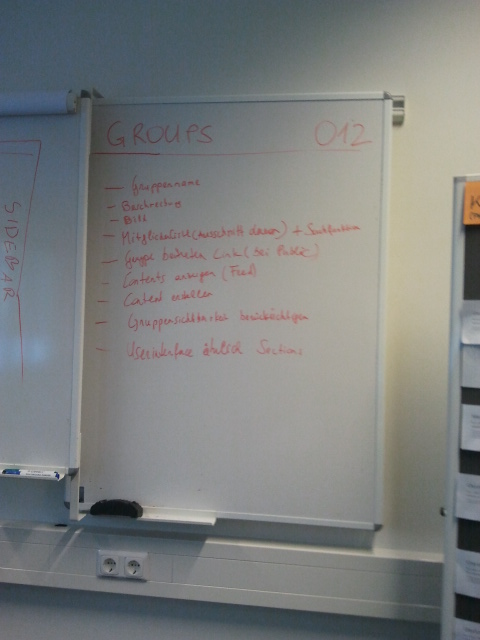 GROUPS 012
– Gruppenname
– Beschreibung
– Bild
– Mitgliederliste (Ausschnitt davon) + Suchfunktion
– Gruppe beitreten Link (bei Public)
– Contents anzeigen (Feed)
– Content erstellen
– Gruppensichtbarkeit berücksichtigen
– Userinterface ähnlich Sections
SIDEBAR
K